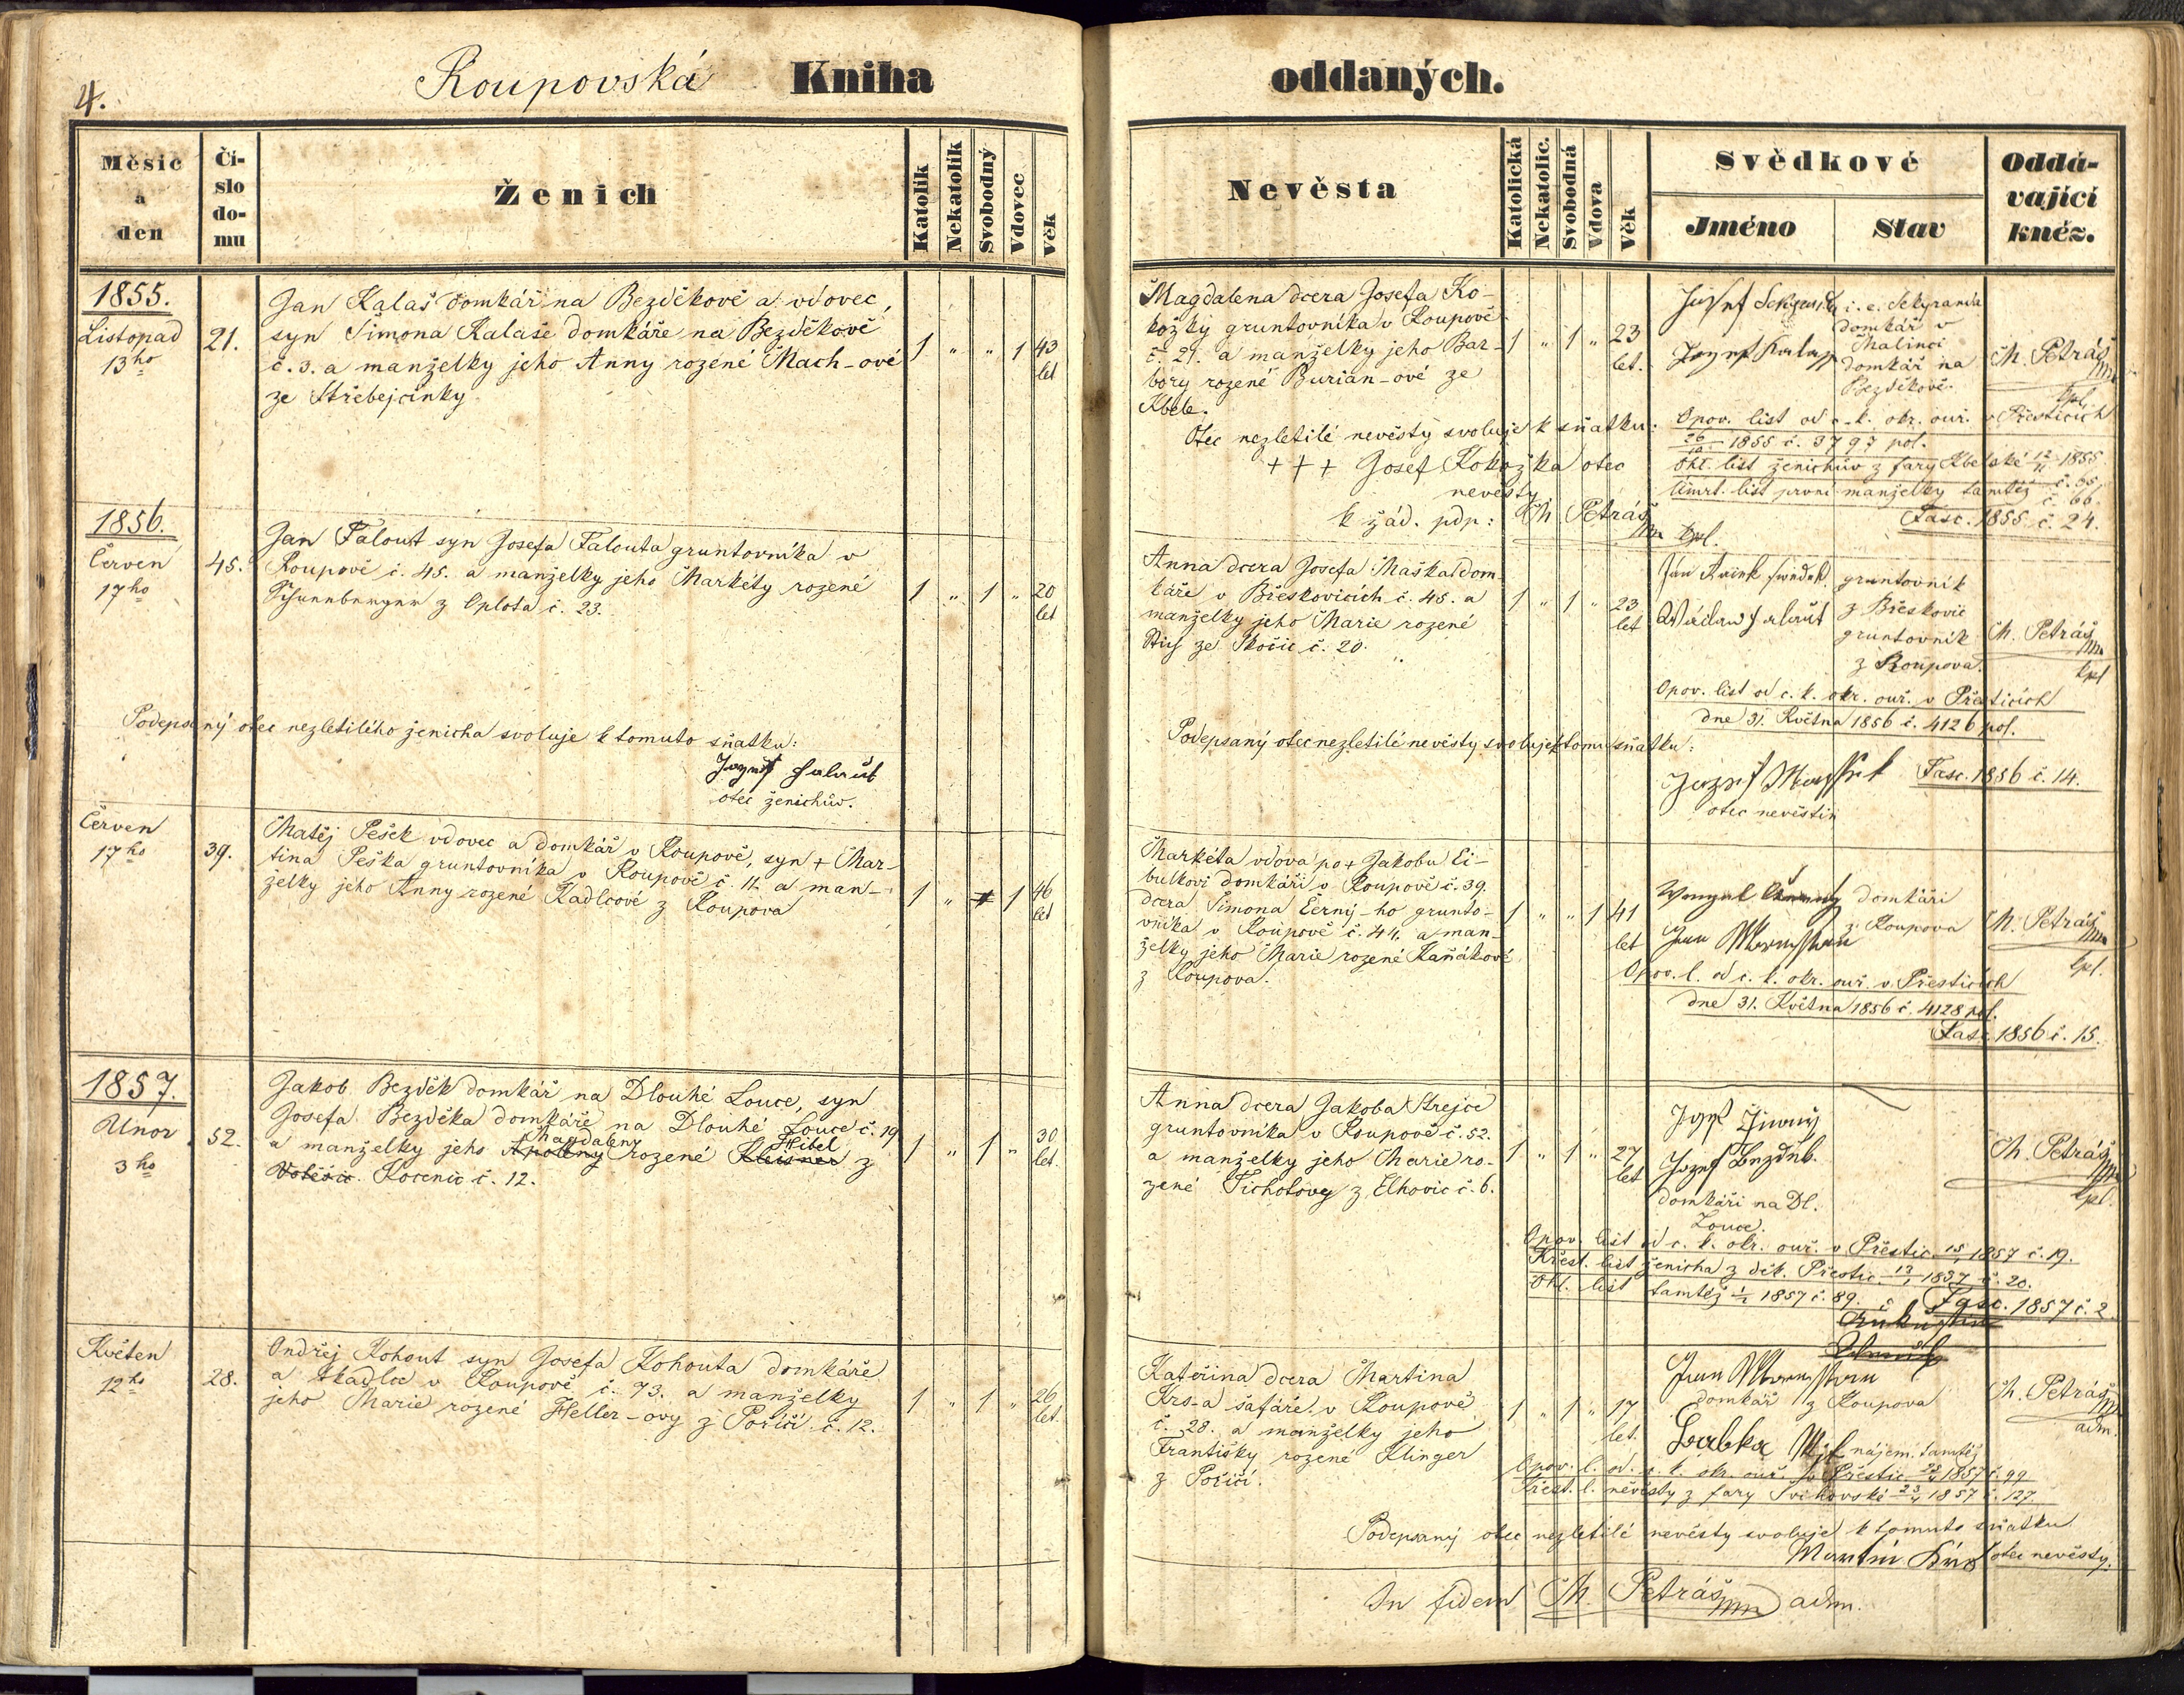 4.
Roupovská Kniha oddaných.
Měsíc a den
Čislo domu
Ženich
Katolík
Nekatolík
Svobodný
Vdovec
Věk
Nevěsta
Katolická
Nekatolic.
Svobodná
Vdova
Věk
Svědkové
Jméno
Stav
Oddávající kněz.
1855.
Listopad
13ho
21.
Jan Kalaš domkář na Bezděkově a vdovec,
syn Šimona Kalaše domkáře na Bezděkově
č. 3. a manželky jeho Anny rozené Mach-ové
ze Střebejčinky
1 " " 1 43
let
Magdalena dcera Josefa Ko-
kožky gruntovníka v Roupově
č. 21. a manželky jeho Bar-
bory rozené Burian-ové ze
Kbele.
1 " 1 " 23
let.
Josef i. e. Sekyranda
domkář v
Malinci
Jozef Kalass domkář na
Bezděkově.
M. Petráš
kpl.
Otec nezletilé nevěsty svoluje k sňatku:
+++ Josef Kokožka otec
nevěsty
k žád. pdp: M Petráš
kpl.
Opov. list od c. k. okr. ouř. v Přesticích
26/10 1855 č. 3797 pol.
Ohl. list ženichův z fary Kbelské 12/11 1855
č. 65.
Úmrt. list první manželky tamtéž č. 66.
Fasc. 1855 č. 24.
1856.
Červen
17ho
45.
Jan Falout syn Josefa Falouta gruntovníka v
Roupově č. 45. a manželky jeho Markéty rozené
z Oplota č. 23.
1 " 1 " 20
let
Anna dcera Josefa Maška dom-
káře v Břeskovicích č. 45. a
manželky jeho Marie rozené
ze Skočic č. 20.
1 " 1 " 23
let
Jan gruntovník
z Břeskovic
Wáclaw Falaut gruntovník
z Roupova.
M. Petráš
kpl
Opov. list od c. k. okr. ouř. v Přesticích
dne 31. Května 1856 č. 4126 pol.
Podepsaný otec nezletilého ženicha svoluje k tomuto sňatku:
Jozef Falaut
otec ženichův.
Podepsaný otec nezletilé nevěsty svoluje k tomu sňatku:
Jozef
otec nevěstin
Fasc. 1856 č. 14.
Červen
17ho
39.
Matěj Pešek vdovec a domkář v Roupově, syn + Mar-
tina Peška gruntovníka v Roupově č. 11. a man-
želky jeho Anny rozené Kadlcové z Roupova
1 " 1 46
let
Markéta vdova po + Jakobu Ci-
bulkovi domkáři v Roupově č. 39.
dcera Šimona Černý-ho grunto-
vníka v Roupově č. 44. a man-
želky jeho Marie rozené Kaňákové
z Roupova.
1 " " 1 41
let
domkáři
Jan z Roupova
M. Petráš
kpl.
Opov. l. od c. k. okr. ouř. v Přesticích
dne 31. Května 1856 č. 4128 pol.
Fasc. 1856 č. 15.
1857.
Unor
3ho
52.
Jakob Bezděk domkář na Dlouhé Louce, syn
Josefa Bezděka domkáře na Dlouhé Louce č. 19
Magdaleny Hibel
a manželky jeho Apoleny rozené z
Kocenic č. 12.
1 " 1 " 30
let.
Anna dcera Jakoba Strejce
gruntovníka v Roupově č. 52.
a manželky jeho Marie ro-
zené Tichotovy z Elhovic č. 6.
1 " 1 " 27
let
Jozef
Jozef Bezděk.
domkáři na Dl.
Louce.
M. Petráš
kpl.
Opov. list od c. k. okr. ouř. v Přestic. 15/1 1857 č. 19.
Křest. list ženicha z děk. Přestic. 13/1 1857 č. 20.
Ohl. list tamtéž 1/2 1857 č. 89.
Fasc. 1857 č. 2.
Květen
12ho
28.
Ondřej Kohout syn Josefa Kohouta domkáře
a tkadlce v Roupově č. 73. a manželky
jeho Marie rozené Heller-ovy z Poříčí č. 12.
1 " 1 " 26
let.
Kateřina dcera Martina
Krs-a šafáře v Roupově
č. 28. a manželky jeho
Františky rozené Klinger
z Poříčí.
1 " 1 " 17
let.
Jan
domkář z Roupova
nájem. tamtéž
M. Petráš
adm.
Opov. l. od c. k. okr. ouř. v Přestic 1857 č. 99
Křest. l. nevěsty z fary Švihovské 23/4 1857 č. 127.
Podepsaný otec nezletilé nevěsty svoluje k tomuto sňatku
Martin Krs otec nevěsty.
In fidem M. Petráš adm.